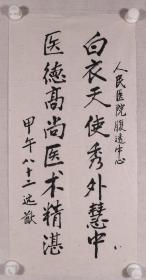 人民医院腹透中心
白衣天使秀外慧中
医德高尚医术精湛
甲午八十二